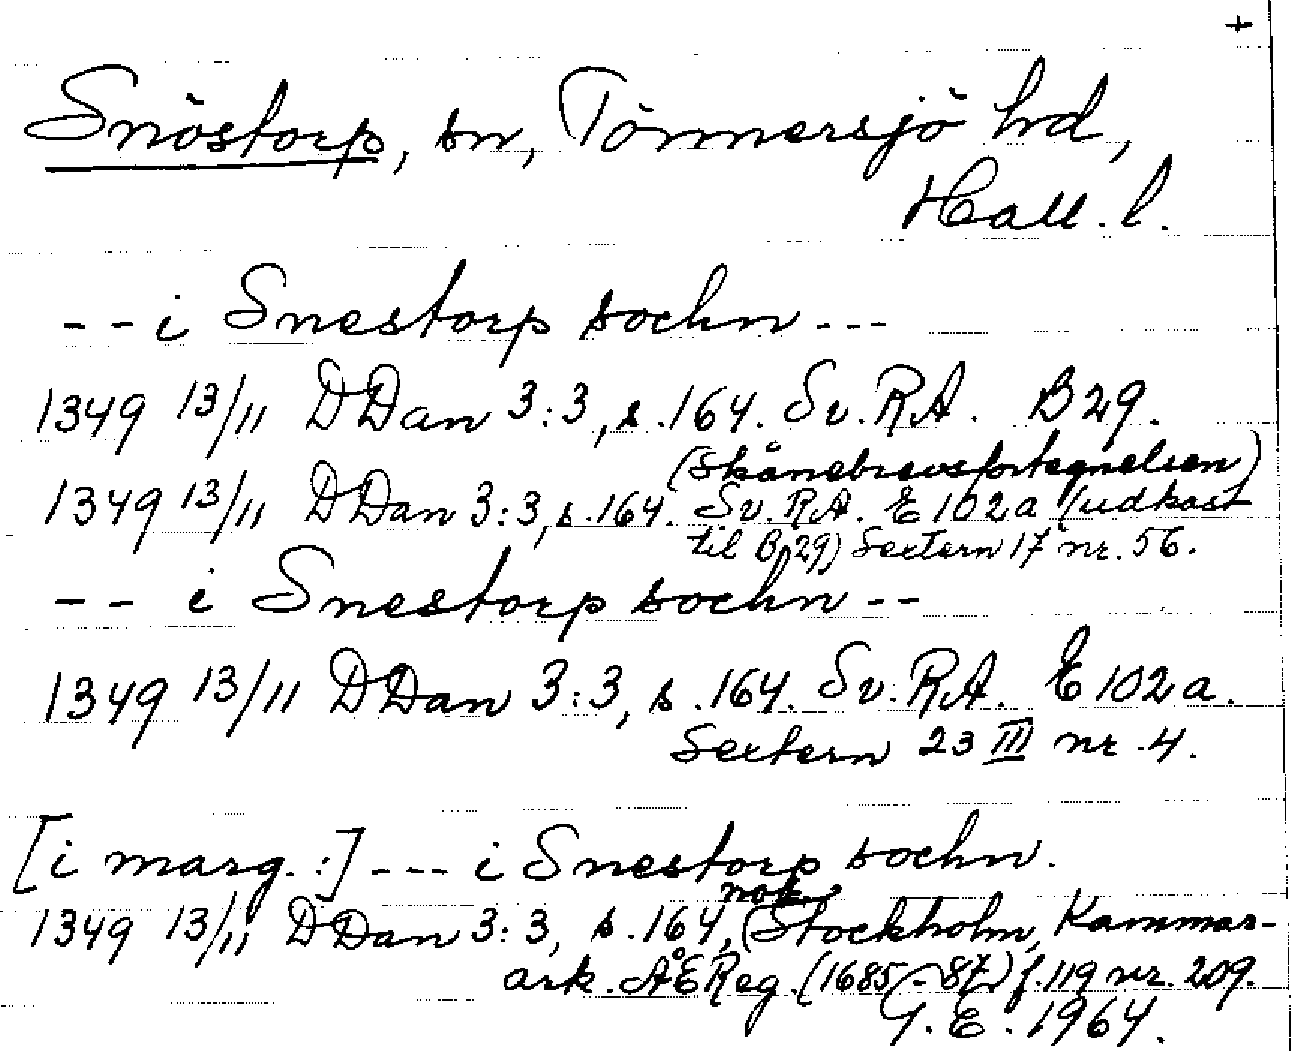 +
Snöstorp, sn, Tönnersjö hd,
Hall. l.
-- i Snestorp sochn ---
1349 13/11 DDan 3:3, s. 164. Sv. RA. B29.
(Skånebrevsfortegnelsen)
1349 13/11 DDan 3:3, s. 164. Sv. RA. E 102a (udkast
til B 29) Sextern 17 nr. 56.
-- i Snestorp sochn --
1349 13/11 DDan 3:3, s. 164. Sv. RA. E 102a.
Sextern 23 III nr. 4.
[i marg.:] --- i Snestorp sochn.
1349 13/11 DDan 3:3, s. 164, (Stockholm, Kammar-
ark. ÅEReg. (1685-87) f. 119 nr. 209.
G. E. 1964.